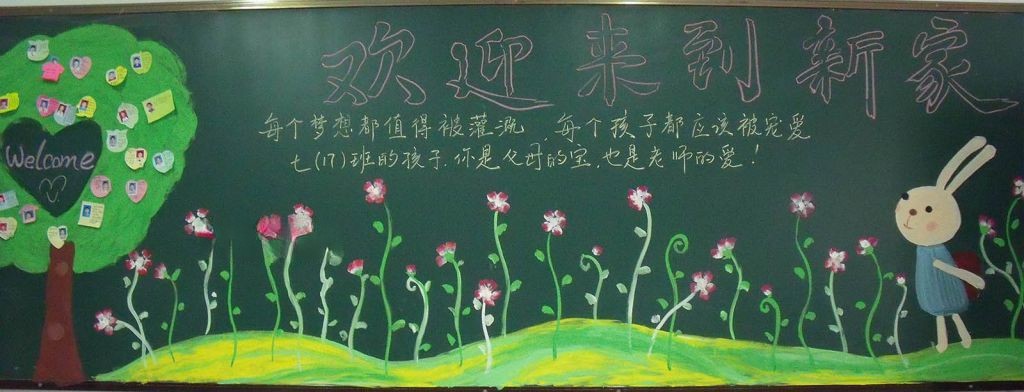 欢迎来到新家
每个梦想都值得被灌溉,每个孩子都应该被宠爱
七(17)班的孩子,你是父母的宝,也是老师的爱!
Welcome